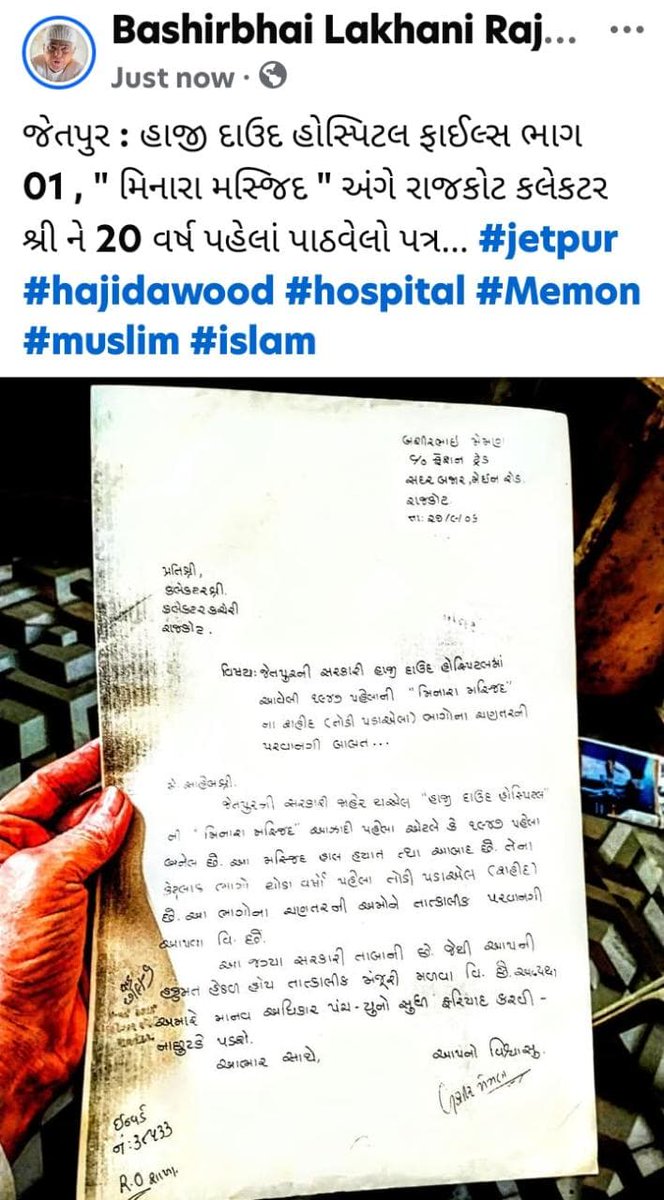 Bashirbhai Lakhani Raj...
Just now
જેતપુર : હાજી દાઉદ હોસ્પિટલ ફાઈલ્સ ભાગ
01 , " મિનારા મસ્જિદ " અંગે રાજકોટ કલેકટર
શ્રી ને 20 વર્ષ પહેલાં પાઠવેલો પત્ર... #jetpur
#hajidawood #hospital #Memon
#muslim #islam
બશીરભાઇ મેમણ
C/o ફેશન ટ્રેડ
સદર બજાર, મેઇન રોડ.
રાજકોટ.
પ્રતિશ્રી,
કલેકટરશ્રી.
કલેકટર કચેરી
રાજકોટ.
વિષય: જેતપુરની સરકારી હાજી દાઉદ હોસ્પિટલમાં
આવેલી ૧૯૪૭ પહેલાની "મિનારા મસ્જિદ"
ના શહીદ (તોડી પડાએલા) ભાગોના ચણતરની
પરવાનગી બાબત...
મે. સાહેબશ્રી.
જેતપુરની સરકારી જાહેર થએલ "હાજી દાઉદ હોસ્પિટલ"
ની "મિનારા મસ્જિદ" આઝાદી પહેલા એટલે કે ૧૯૪૭ પહેલા
બનેલ છે. આ મસ્જિદ હાલ હયાત તથા આબાદ છે. તેના
કેટલાક ભાગો થોડા વર્ષો પહેલા તોડી પડાએલ (શહીદ)
છે. આ ભાગોના ચણતરની અમોને તાત્કાલીક પરવાનગી
આપવા વિ. છે.
આ જગ્યા સરકારી તાબાની છે. જેથી આપની
હકુમત હેઠળ હોય તાત્કાલીક મંજૂરી મળવા વિ. છે.
અમારે માનવ અધિકાર પંચ - યુનો સુધી ફરિયાદ કરવી -
નાછુટકે પડશે.
આભાર સાથે,
આપનો વિશ્વાસુ.
ઈનવર્ડ
નં:
R.O શાખા